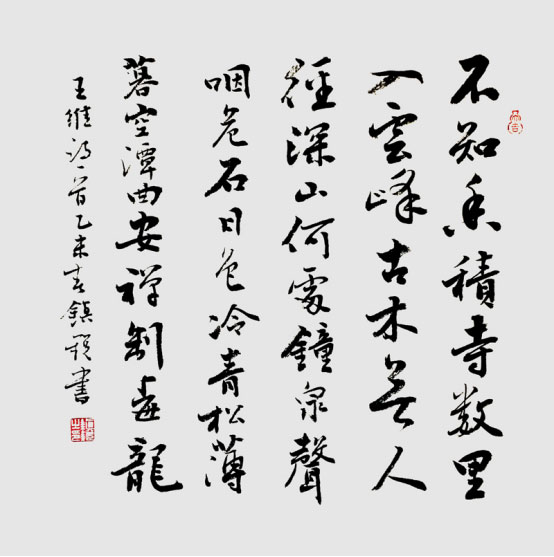 不知香積寺数里
入雲峰古木無人
徑深山何處鐘泉聲
咽危石日色冷青松薄
暮空潭曲安禅制毒龍
王維詩一首乙未春鎮書